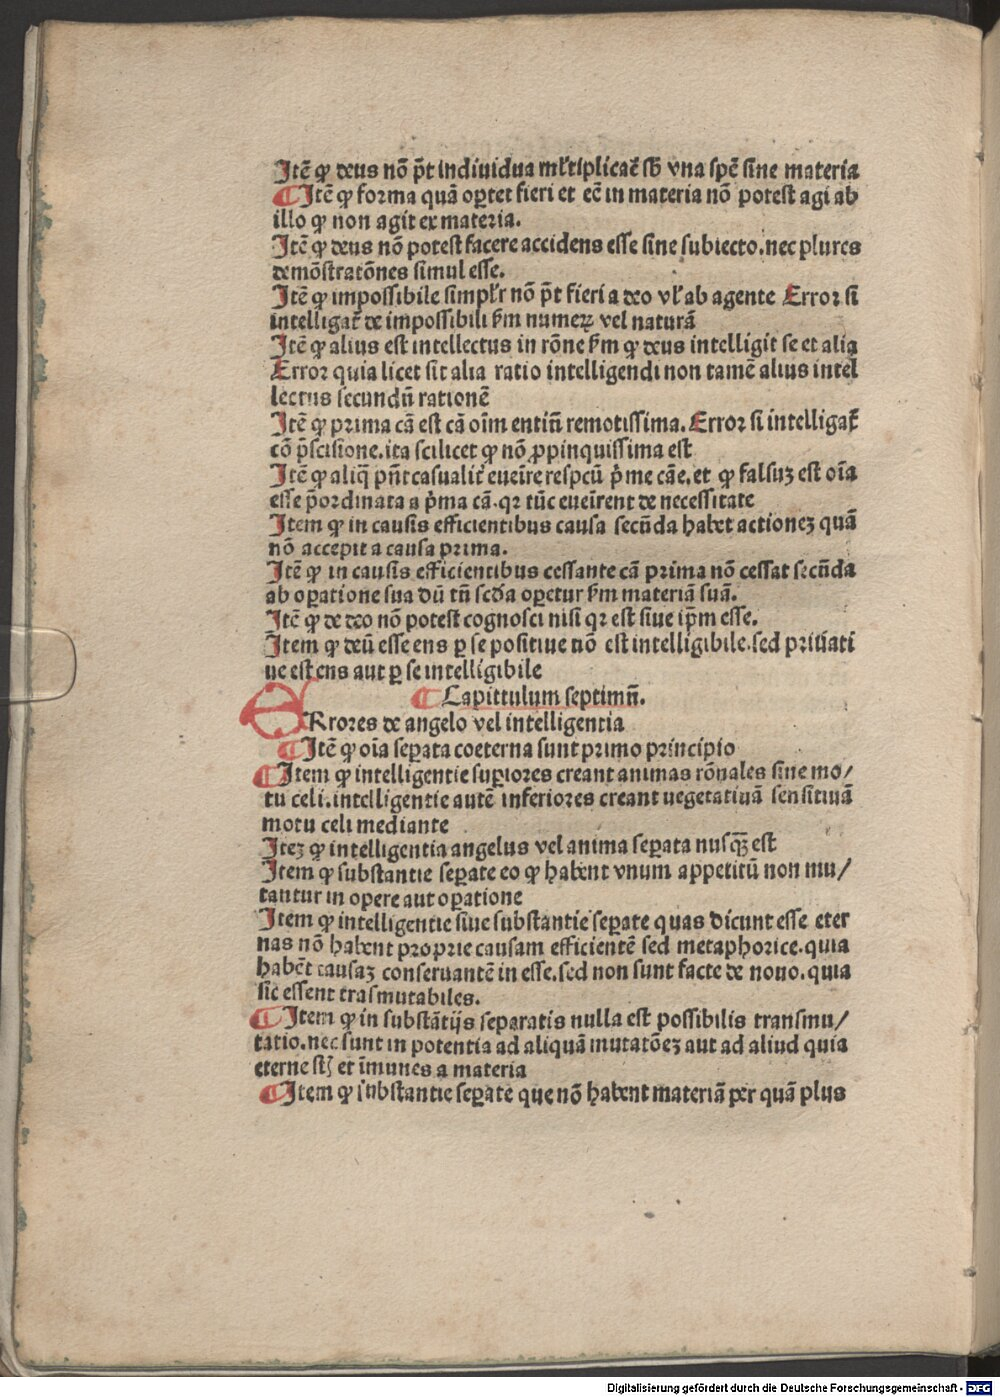 Itē ꝙ deus nō p̄t indiuidua mƚtiplicaē sb̄ vna spē sine materia
¶ Itē ꝙ forma quā oꝑtet fieri et eē in materia nō potest agi ab
illo ꝙ non agit ex materia.
Itē ꝙ deus nō potest facere accidens esse sine subiecto. nec plures
demōstratōnes simul esse.
Itē ꝙ impossibile simpƚr nō p̄t fieri a deo vƚ ab agente Error si
intelligat᷑ de impossibili ẜm numeꝝ vel naturā
Itē ꝙ alius est intellectus in rōne ẜm ꝙ deus intelligit se et alia
Error quia licet sit alia ratio intelligendi non tamē alius intel
lectus secundū rationē
Itē ꝙ prima cā est cā oīm entiū remotissima. Error si intelligat᷑
cō p̄scisione. ita scilicet ꝙ nō ꝓpinquissima est
Itē ꝙ aliq̄ pn̄t casualit᷑ eueīre respcū p̄me cāe. et ꝙ falsuꝫ est oīa
esse p̄ordinata a p̄ma cā. qꝛ tūc eueīrent de necessitate
Item ꝙ in causis efficientibus causa secūda habet actioneꝫ quā
nō accepit a causa prima.
Itē ꝙ in causis efficientibus cessante cā prima nō cessat secūda
ab oꝑatione sua dū tn̄ scd̄a oꝑetur ẜm materiā suā.
Itē ꝙ de deo nō potest cognosci nisi qꝛ est siue ip̄m esse.
Item ꝙ deū esse ens ꝑ se positiue nō est intelligibile. sed priuati
ue est ens aut ꝑ se intelligibile
¶ Capittulum septimū.
ERrores de angelo vel intelligentia
¶ Itē ꝙ oīa seꝑata coeterna sunt primo principio
¶ Item ꝙ intelligentie suꝑiores creant animas rōnales sine mo/
tu celi. intelligentie autē inferiores creant vegetatiuā sensitiuā
motu celi mediante
Iteꝫ ꝙ intelligentia angelus vel anima seꝑata nusq̄ꝫ est
Item ꝙ substantie seꝑate eo ꝙ habent vnum appetitū non mu/
tantur in opere aut oꝑatione
Item ꝙ intelligentie siue substantie seꝑate quas dicunt esse eter
nas nō habent proprie causam efficientē sed metaphorice. quia
habēt causaꝫ conseruantē in esse. sed non sunt facte de nouo. quia
sic essent trasmutabiles.
¶ Item ꝙ in substātijs separatis nulla est possibilis transmu/
tatio. nec sunt in potentia ad aliquā mutatōeꝫ aut ad aliud quia
eterne st̄ et īmunes a materia
¶ Item ꝙ substantie seꝑate que nō habent materiā per quā plus
Digitalisierung gefördert durch die Deutsche Forschungsgemeinschaft - DFG